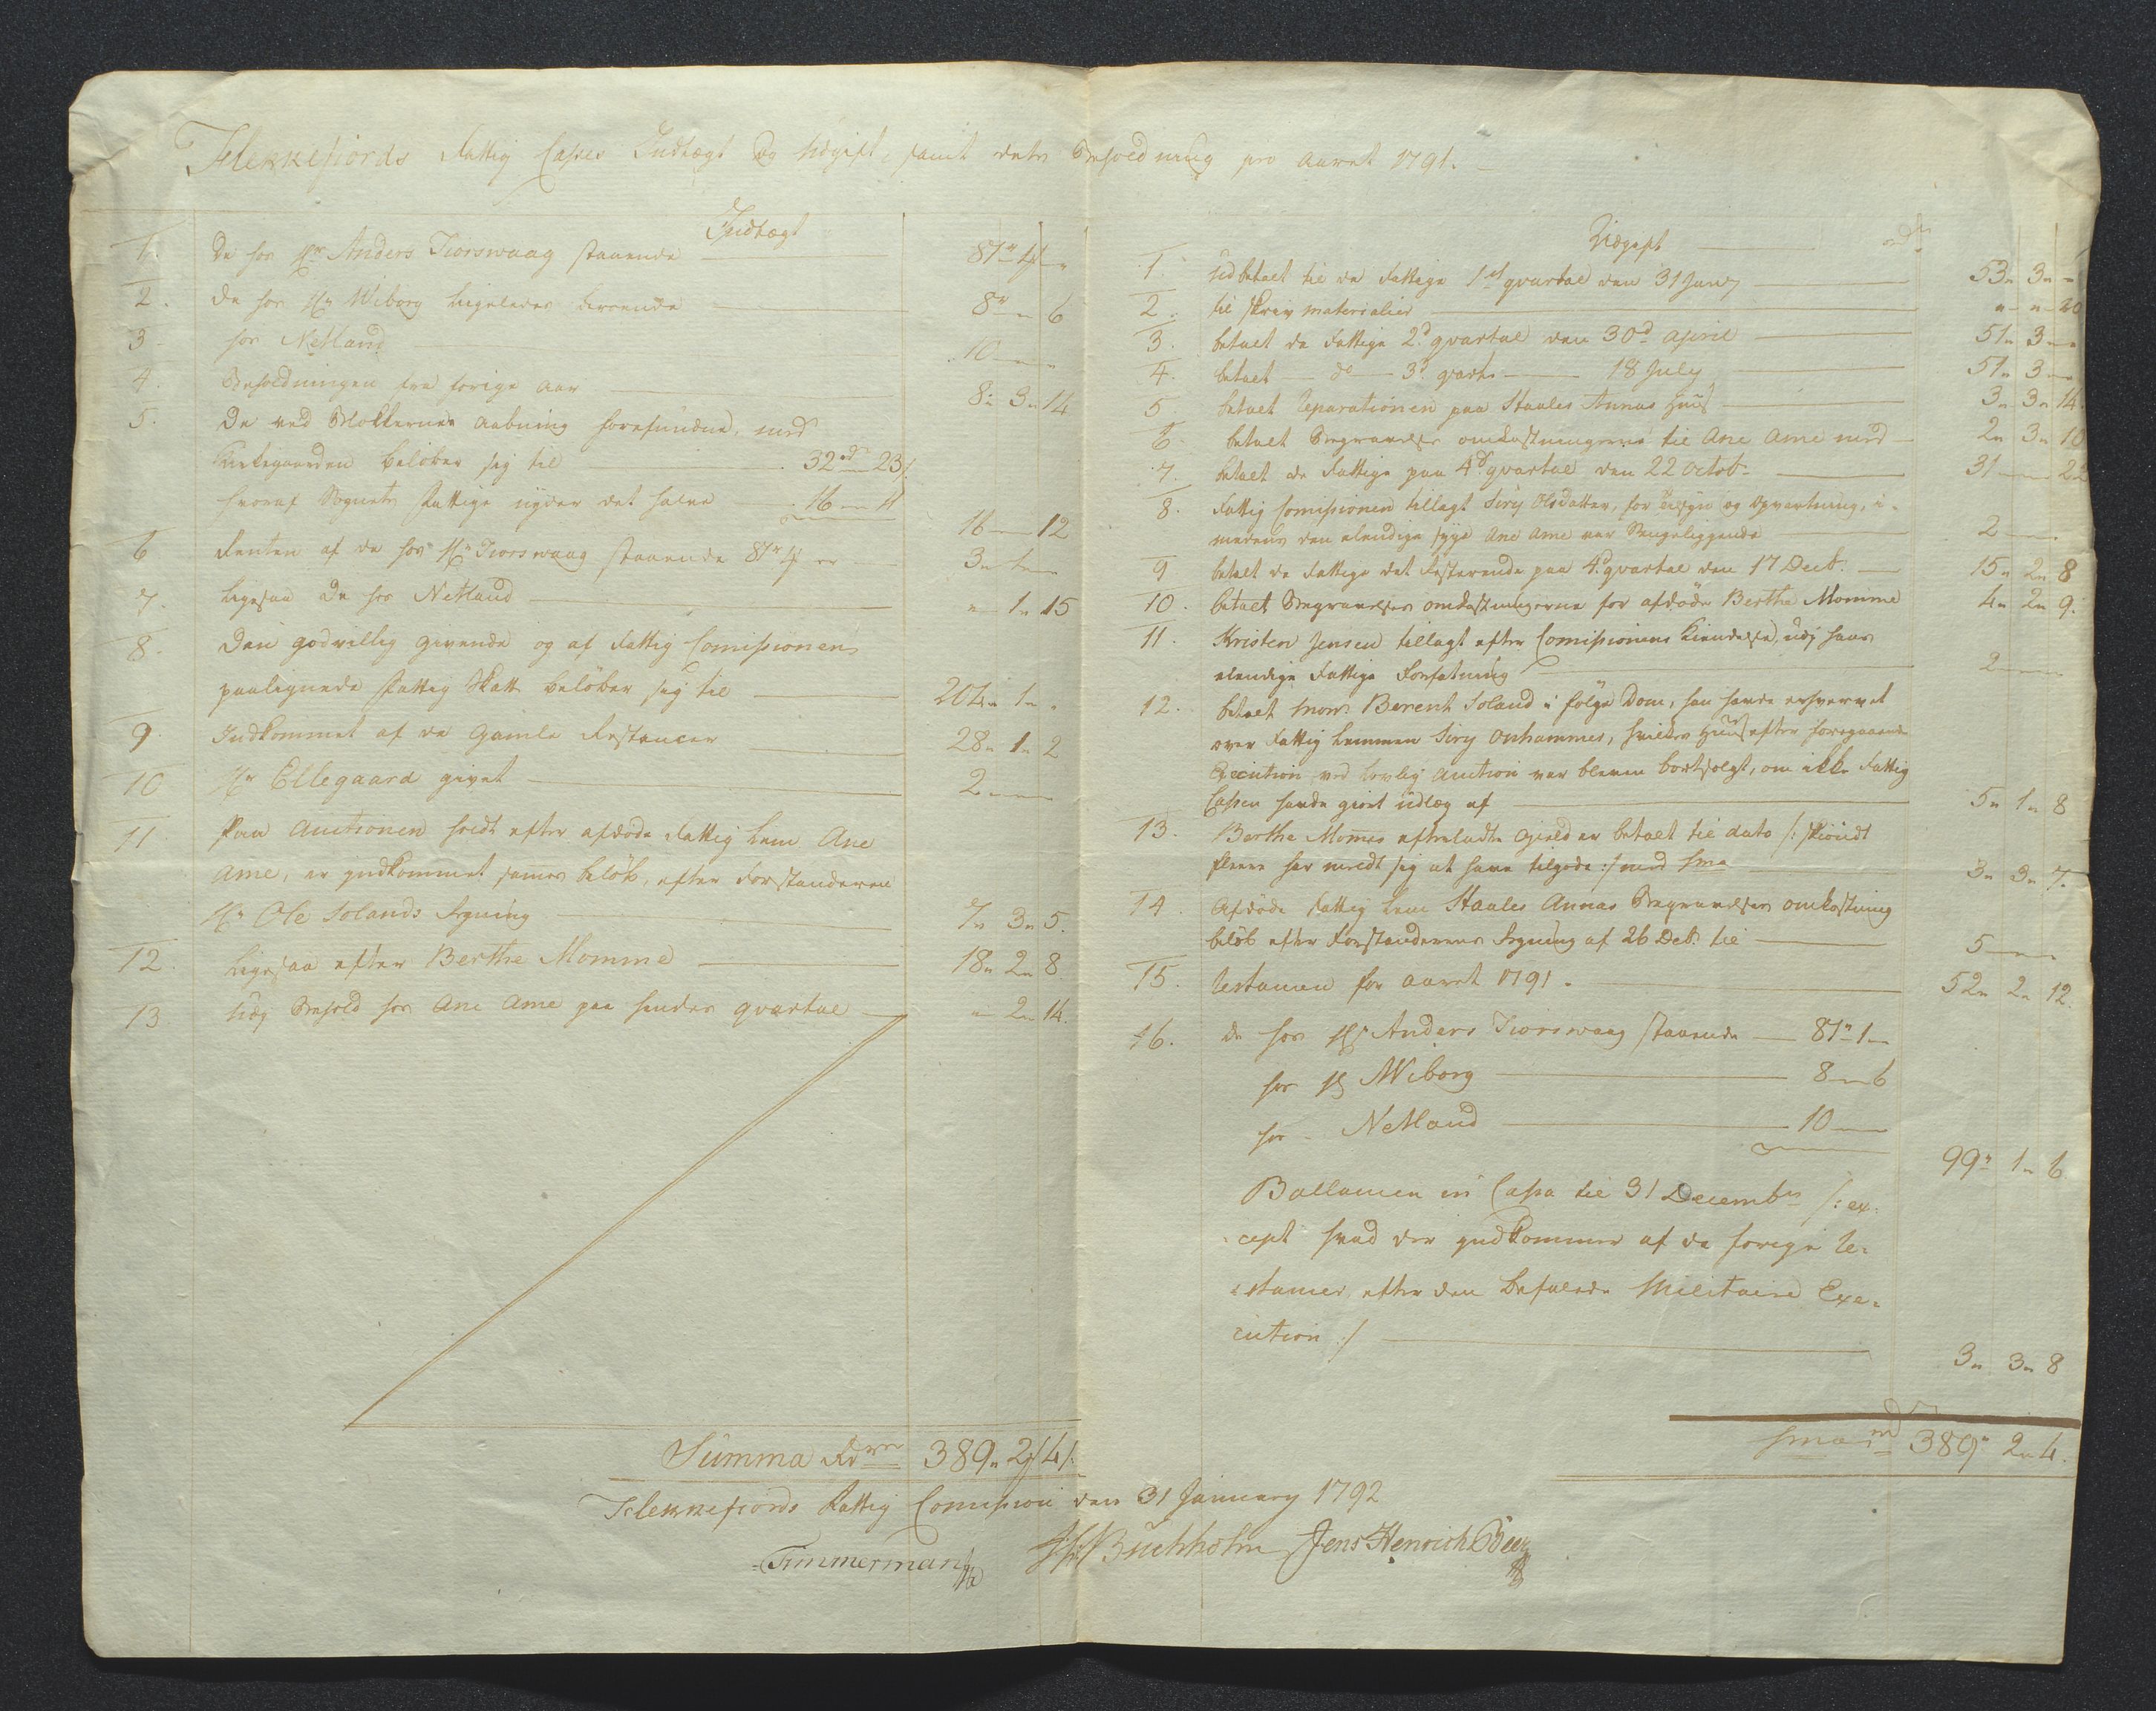 Flekkefiords Fattig Casses Indtægt og Udgift, samt dets Beholdning pro Aaret 1791.
Indtægt
1. De hos Hr Anders Tiorswaag staaende 87 " 1 "
2. De hos Hr Wiborg ligeledes 8 " " 6
3 hos Netland 10
4. Beholdningen fra forige Aar 8 " 3 " 14
5. De ved Blokkernes Aabning forefundne, med
Kirkegaarden beløber sig til 32 rd 23 s
hvoraf Sognets Fattige nyder det halve 16 " 11
16 " 12
6 Renten af de hos Hr Tiorswaag staaende 87 er 3 " 1 "
7. Ligesaa De hos Netland " 1 " 15
8. Den godvillig givende og af Fattig Comissionen
paalignede Fattig Skatt beløber sig til 204 " 1 "
9 Indkommet af de Gamle Restancer 28 " 1 " 2
10 Hr Ellegaard givet 2
11 Paa Auctionen holdt efter afdøde Fattig Lem Ane
Ame, er indkommet sammes beløb, efter Forstanderen
Hr Ole Solands Regning 7 " 3 " 5.
12. Ligesaa efter Berthe Momme 18 " 2 " 8
13 Udj Behold hos Ane Ame paa hendes qvartal " 2 " 14.
Summa Rdr 389 " 2 " 4
Udgift
1. Udbetalt til de Fattige 1st qvartal den 31 Janry 53 " 3 "
2. til Skriv materialier " " 20
3. betalt de Fattige 2d qvartal den 30d April 51 " 3 "
4. betalt do 3d qvart. 18 July 51 " 3 "
5 betalt Reparationen paa Staales Annas Huus 3 " 3 " 14
6. betalt Begravelses omkostningerne til Ane Ame med 2 " 3 " 10
7. betalt de Fattige paa 4d qvartal den 22 Octob. 31 " 22
8. Fattig Comissionen tillagt Siry Olsdatter, for tilsyn og Opvartning, i-
medens den elendige syge Ane Ame var Sengeliggende 2
9 betalt de Fattige det Resterende paa 4d qvartal den 17 Decb. 15 " 2 " 8
10. betalt Begravelses omkostningerne for afdøde Berthe Momme 4 " 2 " 9.
11. Kristen Jensen tillagt efter Comissionens Kiendelse, udj hans
elendige Fattige Forfatning 2
12. betalt Mons. Berent Soland i følge Dom, han havde erhvervet
over Fattig Lemmen Siry Onhammer, hvilkes Huus efter foregaaende
Execution ved lovlig Auction var bleven bortsolgt, om ikke Fattig
Cassen havde giort udlæg af 5 " 1 " 8
13. Berthe Mommes efterladte Gield er betalt til dato /: skiøndt
fleere har meldt sig at have tilgode :/ med Sma 3 " 3 " 7.
14. Afdøde Fattig Lem Staales Annas Begravelses omkostning
beløb efter Forstanderens Regning af 26 Decb. til 5
15. Restancen for Aaret 1791. 52 " 2 " 12.
16. de hos Hr Anders Tiorswaag staaende 87 " 1
hos Hr Wiborg 8 " 6
hos Netland 10
99 " 1 " 6
Ballancen in Cassa til 31 Decembr /: ex-
cept hvad der indkommer af de forrige Re-
stancer efter den befalede Militaire Exe-
cution :/ 3 " 3 " 8
Sma rd 389 " 2 " 4.
Flekkefiords Fattig Comission den 31 January 1792
Timmerman Buchholm Jens Henrich Beer